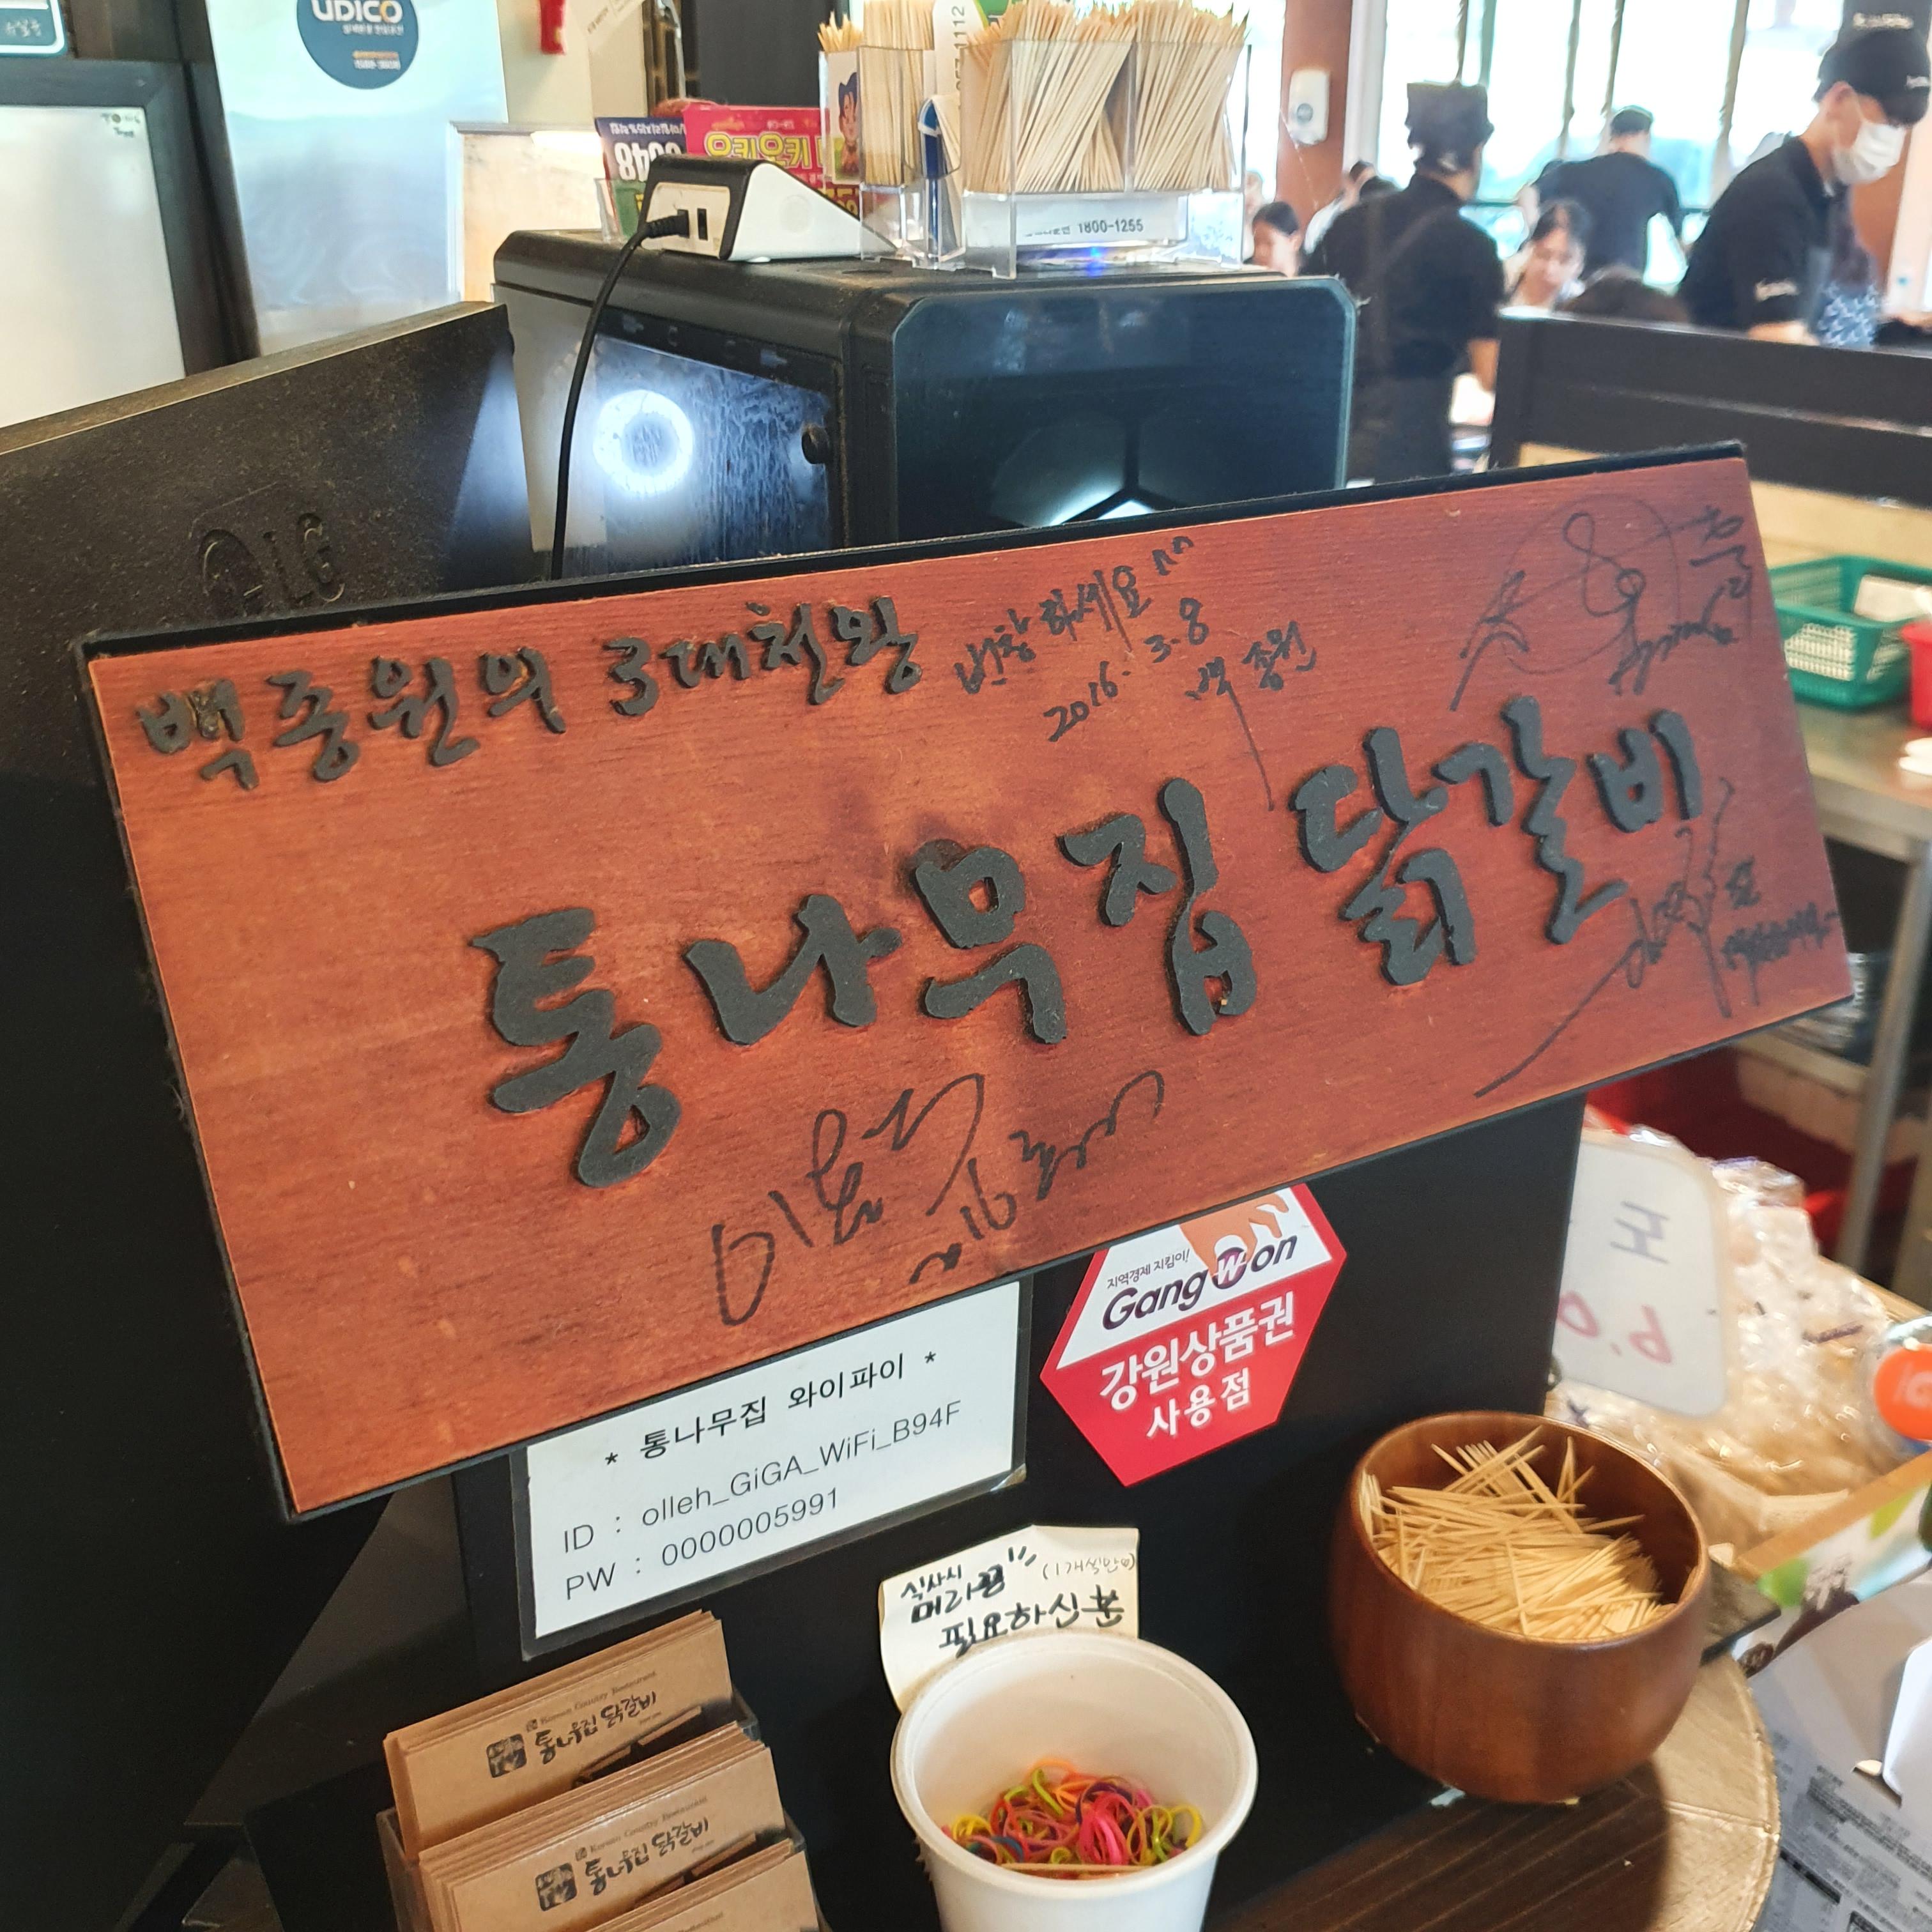 UDICO
요키요키
1800-1255
LG
백종원의 3대천왕
번창하세요 ^^
2016. 3. 8
백종원
통나무집 닭갈비
지역경제 지킴이!
GangWon
강원상품권
사용점
* 통나무집 와이파이 *
ID : olleh_GiGA_WiFi_B94F
PW : 0000005991
식사시 (1개씩만)
머리끈
필요하신 분
Korean Country Restaurant
통나무집 닭갈비
Korean Country Restaurant
통나무집 닭갈비